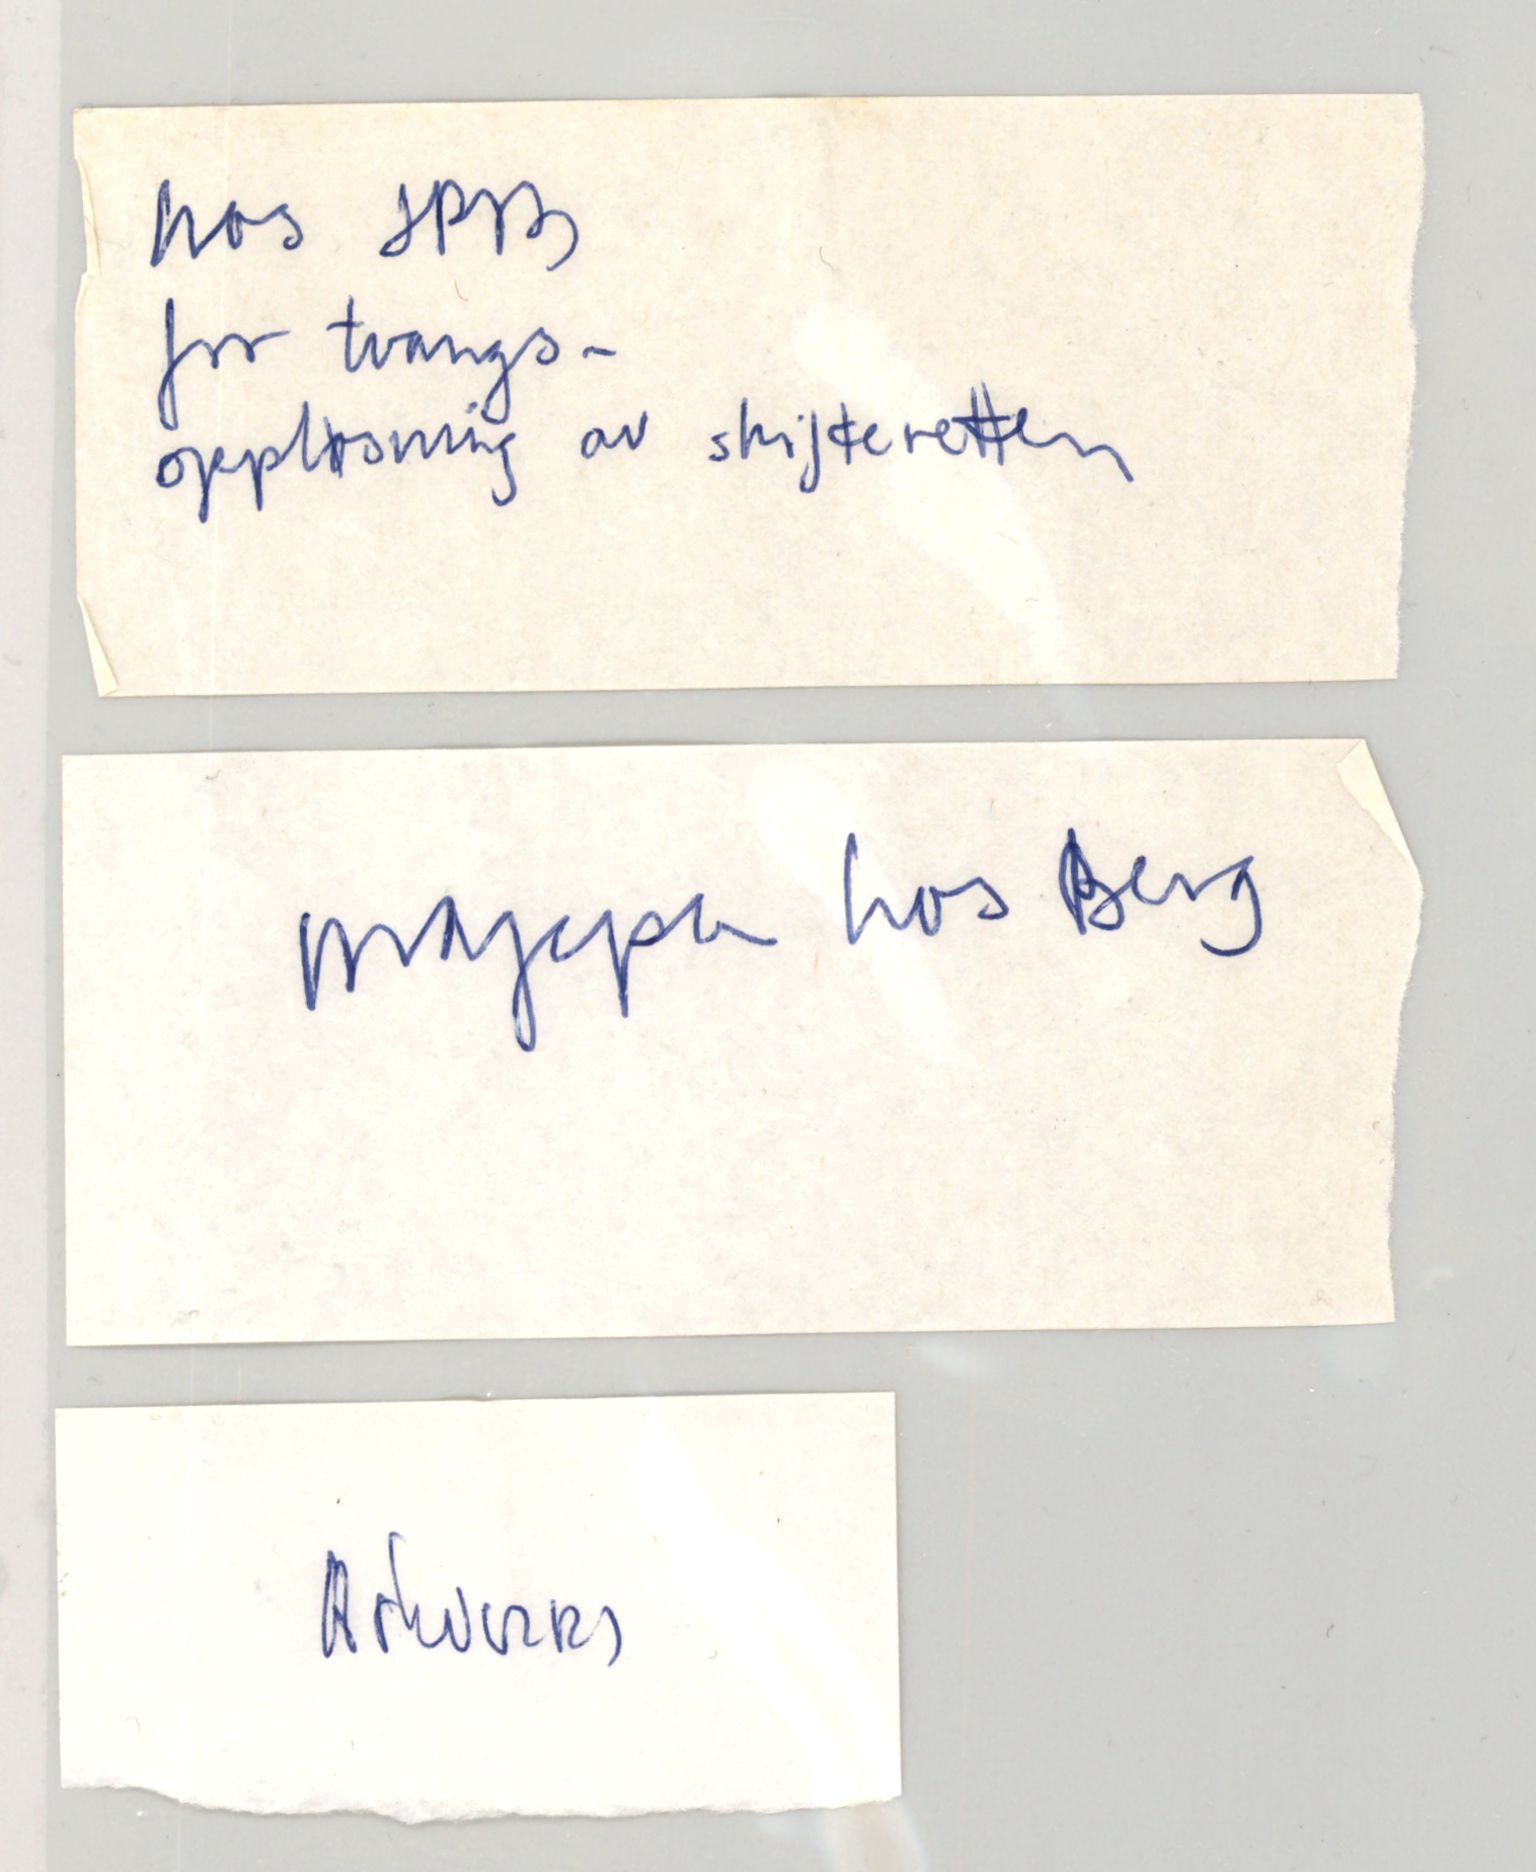 hos JPB
for tvangs-
oppløsning av skifteretten
hos Berg
Arkiveres